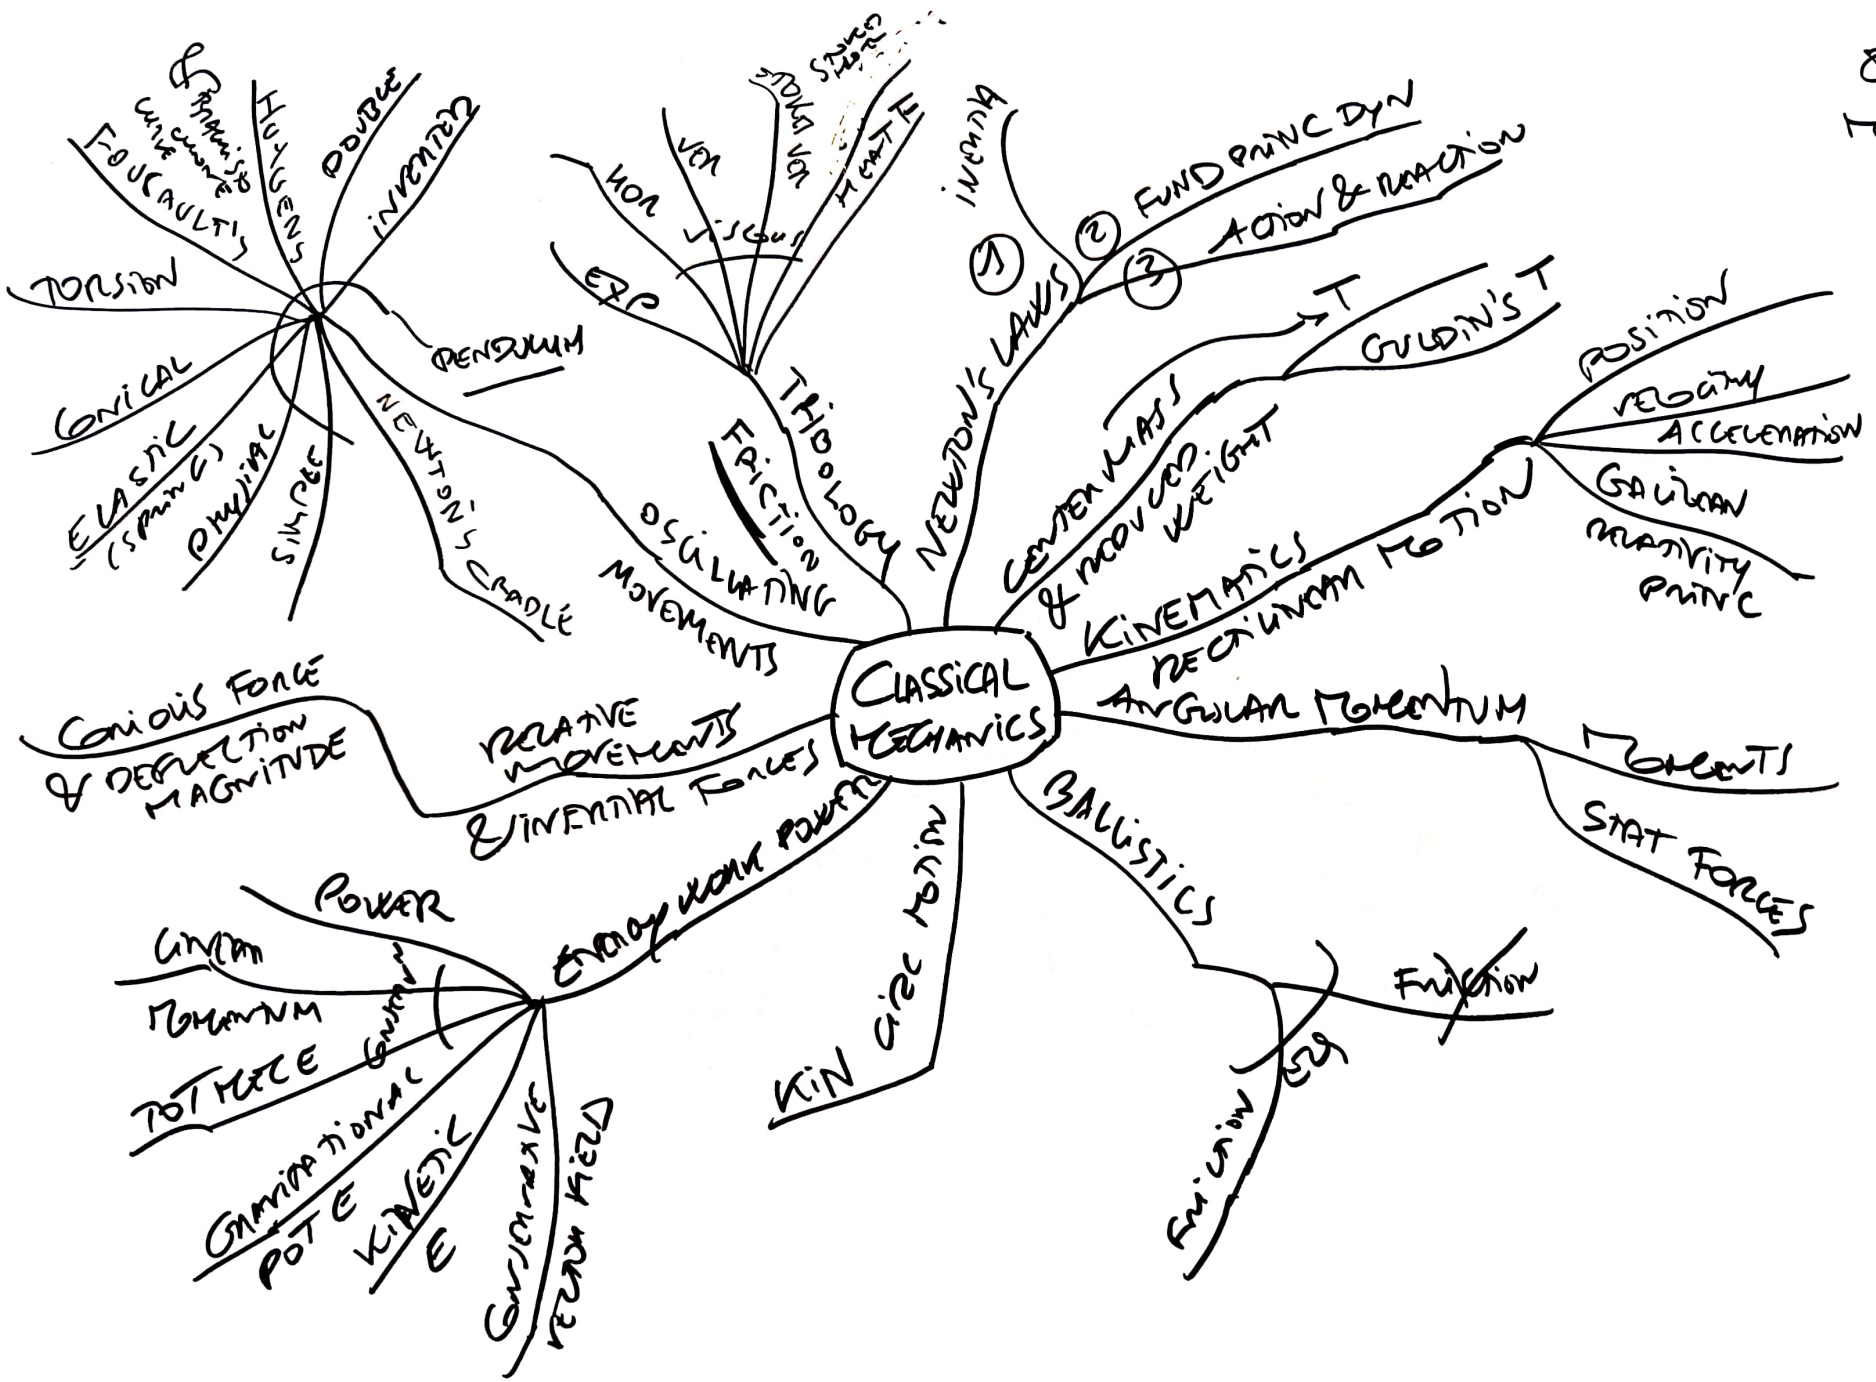 CLASSICAL
MECHANICS
NEWTON'S LAWS
1
INERTIA
2
FUND PRINC DYN
3
ACTION & REACTION
CENTER MASS
& REDUCED
WEIGHT
T
GULDIN'S T
KINEMATICS
RECTILINEAR MOTION
POSITION
VELOCITY
ACCELERATION
GALILEAN
RELATIVITY
PRINC
ANGULAR MOMENTUM
MOMENTS
STAT FORCES
BALLISTICS
FRICTION
FRICTION
KIN CIRC MOTION
ENERGY WORK POWER
POWER
LINEAR
MOMENTUM
CONSTANT
TOT MECC E
GRAVITATIONAL
POT E
KINETIC
E
CONSERVATIVE
VECTOR FIELD
RELATIVE
MOVEMENTS
& INERTIAL FORCES
CORIOLIS FORCE
& DEFLECTION
MAGNITUDE
OSCILLATING
MOVEMENTS
PENDULUM
NEWTON'S CRADLE
SIMPLE
PHYSICAL
ELASTIC
(SPRING)
CONICAL
TORSION
FOUCAULT'S
HUYGENS
DOUBLE
INVERTED
TRIBOLOGY
FRICTION
EXP
VISCOUS
HOR
VER
VER